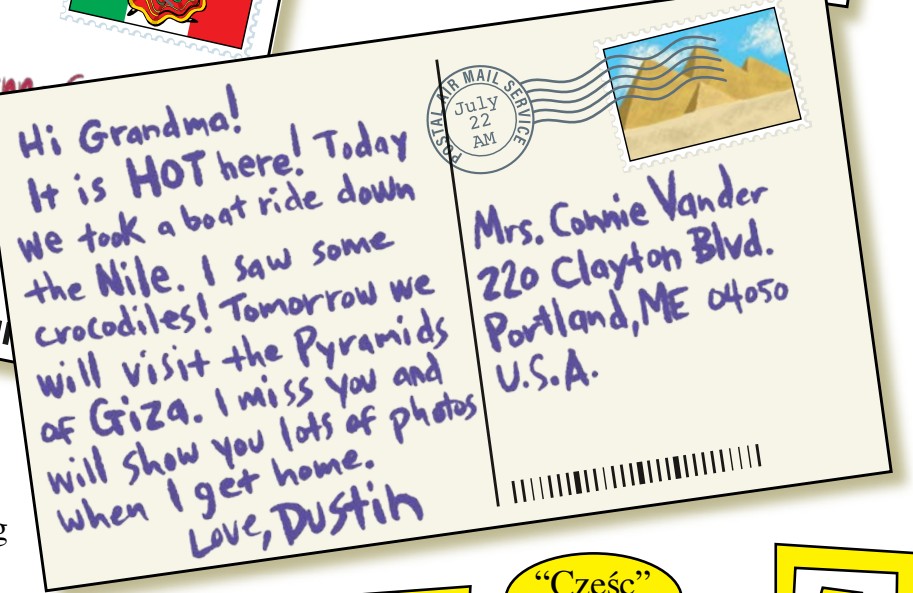 Hi Grandma!
It is HOT here! Today
we took a boat ride down
the Nile. I saw some
crocodiles! Tomorrow we
will visit the Pyramids
of Giza. I miss you and
will show you lots of photos
when I get home.
Love, Dustin
POSTAL AIR MAIL SERVICE
July
22
AM
Mrs. Connie Vander
220 Clayton Blvd.
Portland, ME 04050
U.S.A.
g
“Cześc”